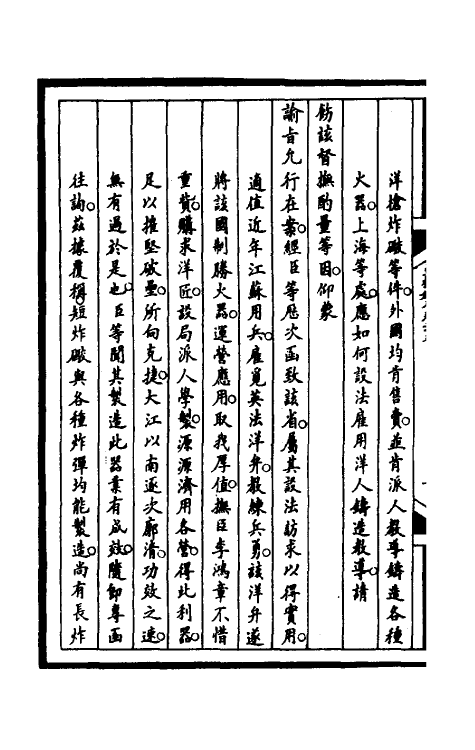 洋槍炸礮等件外國均肯售賣並肯派人教導鑄造各種
火器。上海等處。應如何設法雇用洋人鑄造教導。請
飭該督撫酌量等因。仰蒙
諭旨允行在案。經臣等歷次函致該省。屬其設法訪求以得實用。
適值近年江蘇用兵。雇覓英法洋弁。教練兵勇。該洋弁遂
將該國制勝火器。運營應用。取我厚值。撫臣李鴻章不惜
重貲。購求洋匠。設局派人學製。源源濟用。各營得此利器。
足以摧堅破壘。所向克捷。大江以南逐次廓清。功效之速。
無有過於是也。臣等聞其製造此器業有成效。隨卽專函
往詢。茲據覆稱。短炸礮與各種炸彈均能製造。尚有長炸